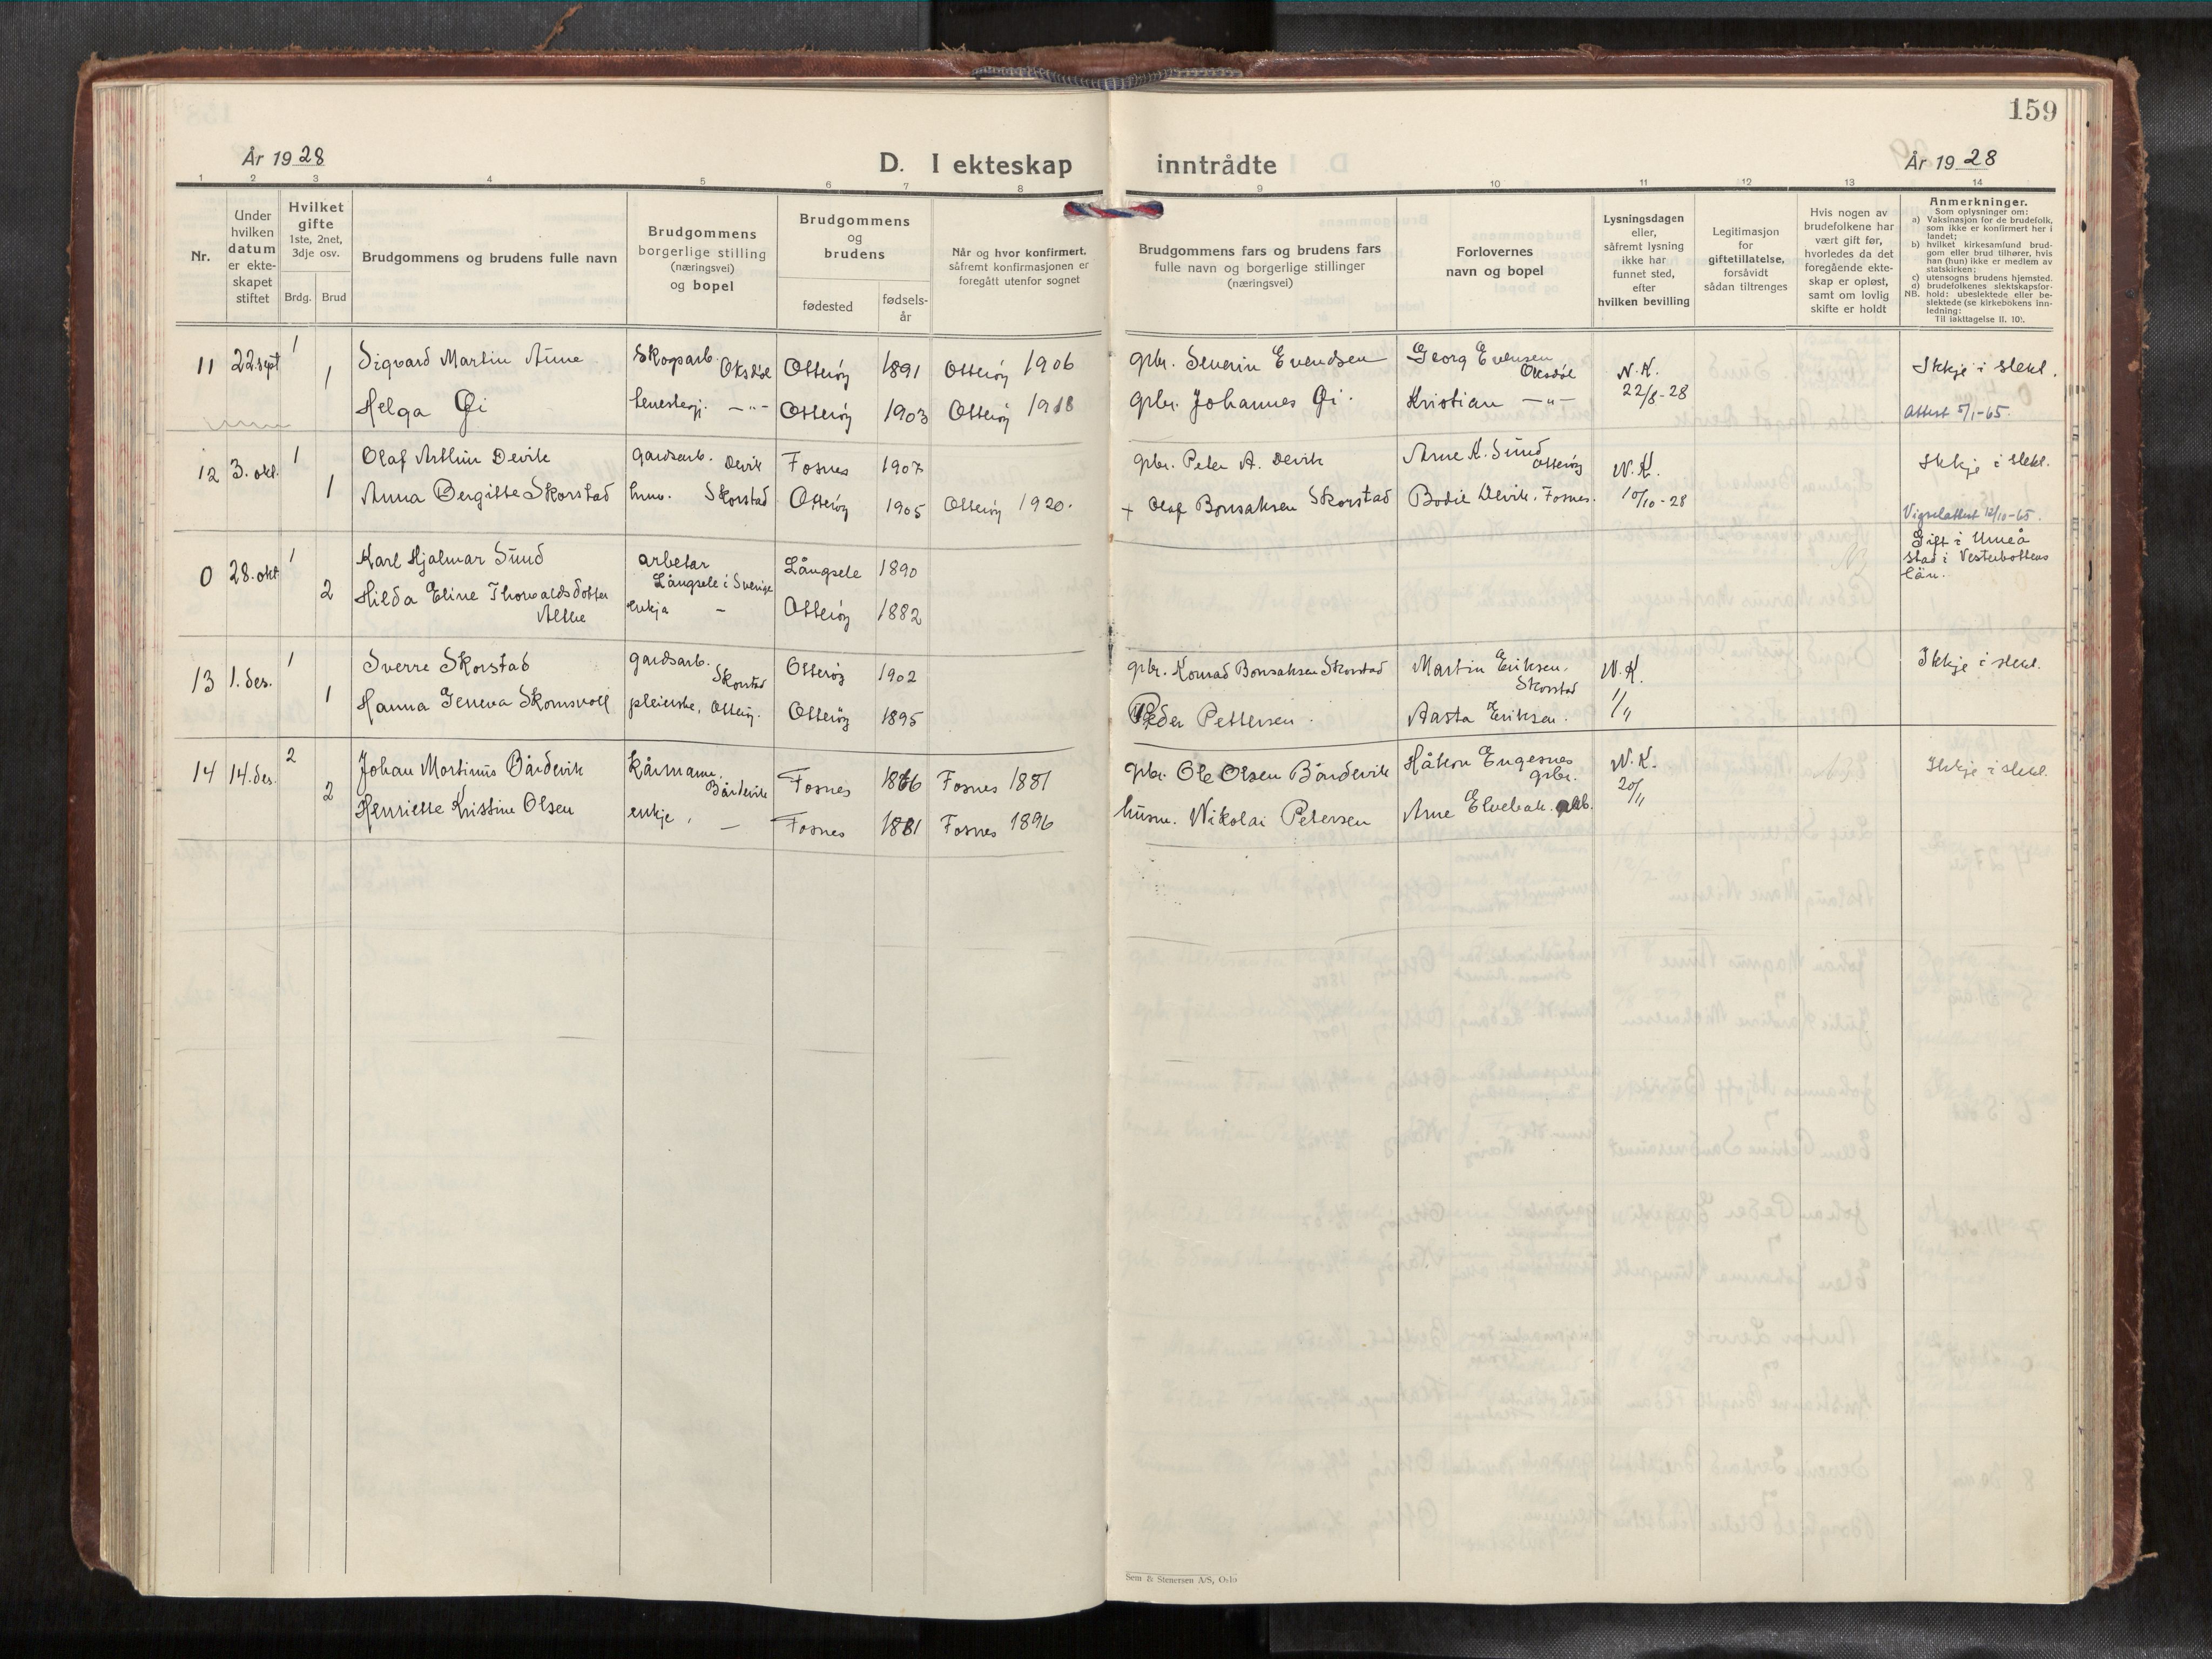 159
År 1928
D. I ekteskap inntrådte
År 1928
1 2 3 4 5 6 7 8 9 10 11 12 13 14
Nr.
Under hvilken datum er ekteskapet stiftet
Hvilket gifte
1ste, 2net, 3dje osv.
Brdg. Brud
Brudgommens og brudens fulle navn
Brudgommens borgerlige stilling (næringsvei) og bopel
Brudgommens og brudens
fødested
fødsels-år
Når og hvor konfirmert, såfremt konfirmasjonen er foregått utenfor sognet
Brudgommens fars og brudens fars fulle navn og borgerlige stillinger (næringsvei)
Forlovernes navn og bopel
Lysningsdagen eller, såfremt lysning ikke har funnet sted, efter hvilken bevilling
Legitimasjon for giftetillatelse, forsåvidt sådan tiltrenges
Hvis nogen av brudefolkene har vært gift før, hvorledes da det foregående ekteskap er opløst, samt om lovlig skifte er holdt
Anmerkninger.
Som oplysninger om:
a) Vaksinasjon for de brudefolk, som ikke er konfirmert her i landet;
b) hvilket kirkesamfund brudgom eller brud tilhører, hvis han (hun) ikke er medlem av statskirken;
c) utensogns brudens hjemsted.
d) brudefolkenes slektskapsforhold: ubeslektede eller beslektede (se kirkebokens innledning:
NB.
Til iakttagelse II. 10).
11 22. sept 1 Sigvard Martin Aune Skogsarb. Oksdøl Otterøy 1891 Otterøy 1906 gbr. Severin Evendsen Georg Evensen Oksdøl N.K. 22/8-28 Ikkje i slekt.
1 Helga Øi tenestegj. -"- Otterøy 1903 Otterøy 1918 gbr. Johannes Øi. Kristian -"- Attest 5/1-65.
12 3. okt. 1 Olaf Arthur Devik gardsarb. Devik Fosnes 1907 gbr. Peter A. Devik Arne K. Sund Otterøy N.K. 10/10-28 Ikkje i slekt.
1 Anna Bergitte Skorstad hus. Skorstad Otterøy 1905 Otterøy 1920. + Olaf Bonsaksen Skorstad Bodil Devik, Fosnes. Vigselattest 12/10-65.
0 28. okt 1 Karl Hjalmar Sund arbetar Långsele i Sverige Långsele 1890 Gift i Umeå stad i Vesterbottens län.
2 Hilda Eline Thorvaldsdotter enkja - Otterøy 1882
13 1. des. 1 Sverre Skorstad gardsarb. Skorstad Otterøy 1902 gbr. Konrad Bonsaksen Skorstad Martin Eriksen, Skorstad N.K. 1/11 Ikkje i slekt.
1 Hanna Geneva Skomsvoll pleierske, Otterøy. Otterøy 1895 Peder Pettersen. Aasta Eriksen.
14 14. des. 2 Johan Mortinus Bårdevik kårmann, Bårdevik Fosnes 1866 Fosnes 1881 gbr. Ole Olsen Bårdevik Håkon Engesnes gbr. N.K. 20/11 Ikkje i slekt.
2 Henriette Kristine Olsen enkje, - Fosnes 1881 Fosnes 1896 husm. Nikolai Petersen Arne Elvebak.
Sem & Stenersen A/S, Oslo